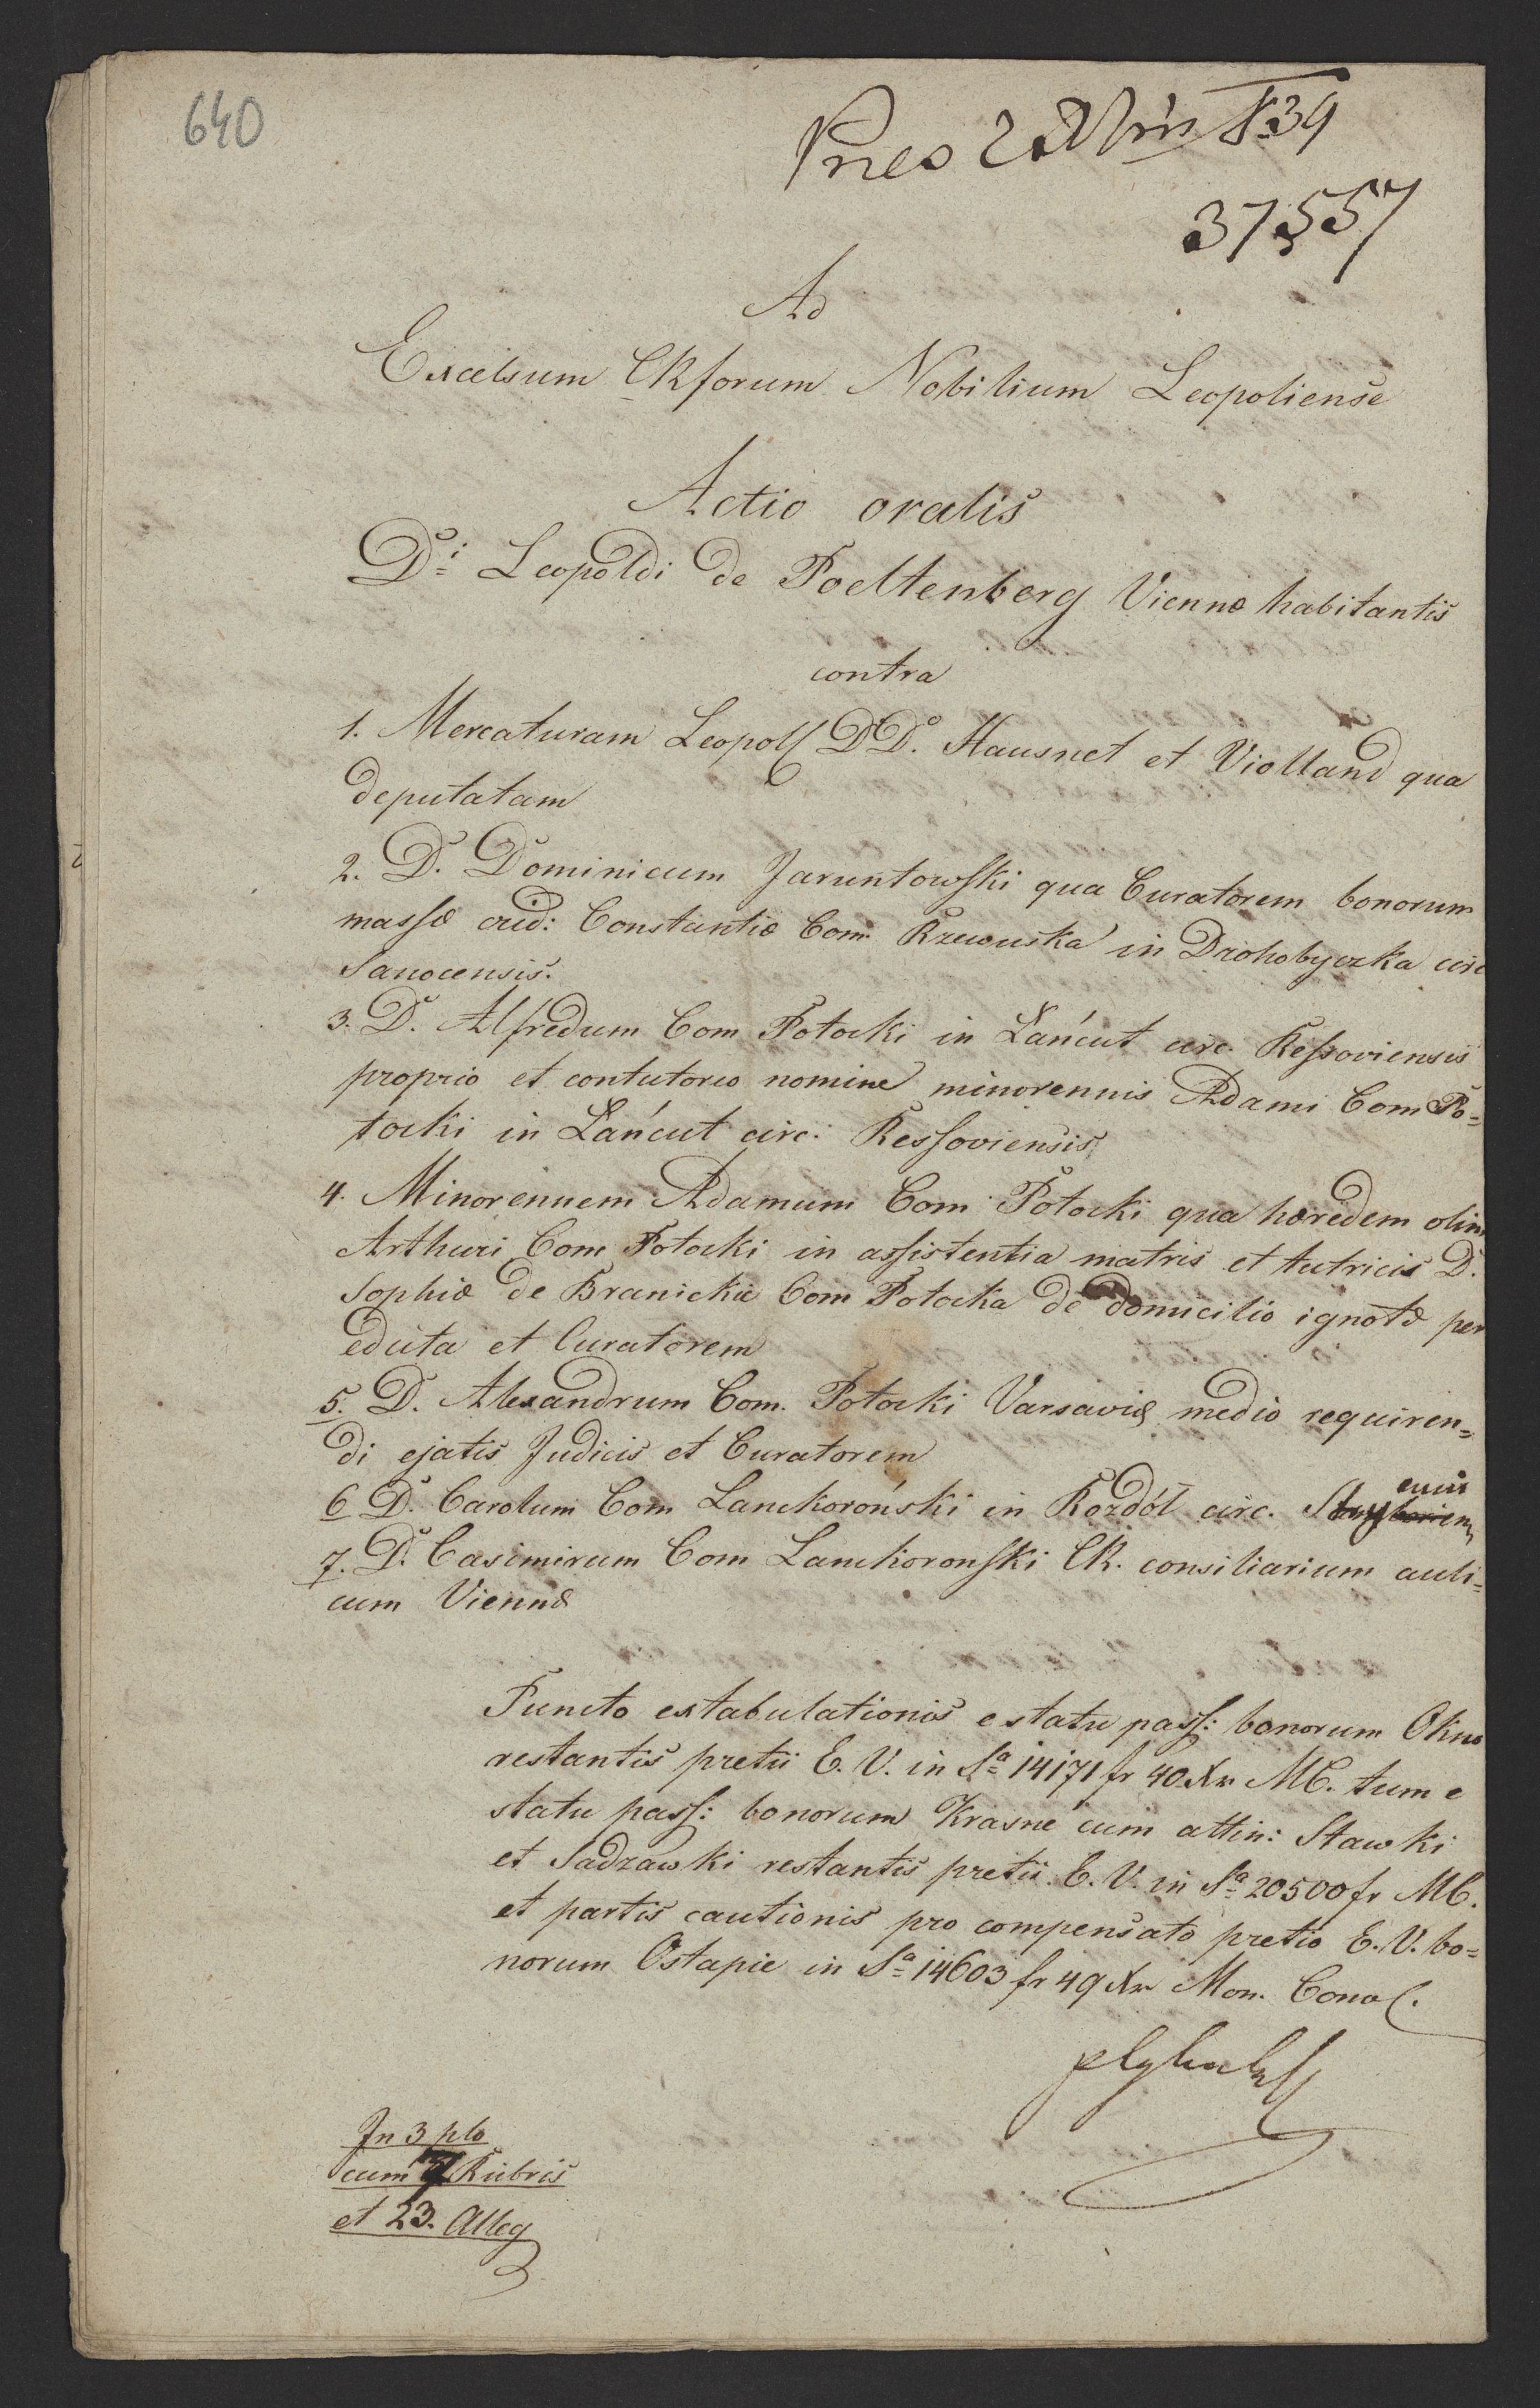 640
Pres 2 Xbris 839
37557
Ad
Excelsum CR forum Nobilium Leopoliense
Actio oralis
Di Leopoldi de Poeltenberg Viennæ habitantis
contra
1. Mercaturam Leopol DD. Hausner et Violland qua
deputatam
2. D. Dominicum Jaruntowski qua Curatorem bonorum
massæ cred: Constantiæ Com Rzewuska in Drohobyczka circ
Sanocensis.
3. D. Alfredum Com Potocki in Łańcut circ. Ressoviensis
proprio et contutorio nomine minorennis Adami Com Po=
tocki in Łańcut circ: Ressoviensis
4. Minorennem Adamum Com Potocki qua hæredem olim
Arthuri Com Potocki in assistentia matris et tutricis D.
Sophiæ de Branickie Com Potocka de domicilio ignotæ per
edicta et Curatorem
5. D. Alexandrum Com. Potocki Varsaviæ medio requiren=
di ejatis Judicis et Curatorem
6 D. Carolum Com Lanckoroński in Rozdół circ. Stry
7. D. Casimirum Com Lanckoronski CR. consiliarium auli=
cum Viennæ
Puncto extabulationis e statu pass: bonorum Okno
restantis pretii E. V. in Sa 14171 fr 40 Xr MC. tum e
statu pass: bonorum Krasne cum attin: Stawki
et Sadzawki restantis pretii E. V. in Sa 20500 fr MC.
et partis cautionis pro compensato pretio E. V. bo=
norum Ostapie in Sa 14603 fr 49 Xr Mon. Conv.
In 3 plo
cum 7 Rubris
et 23. Alleg